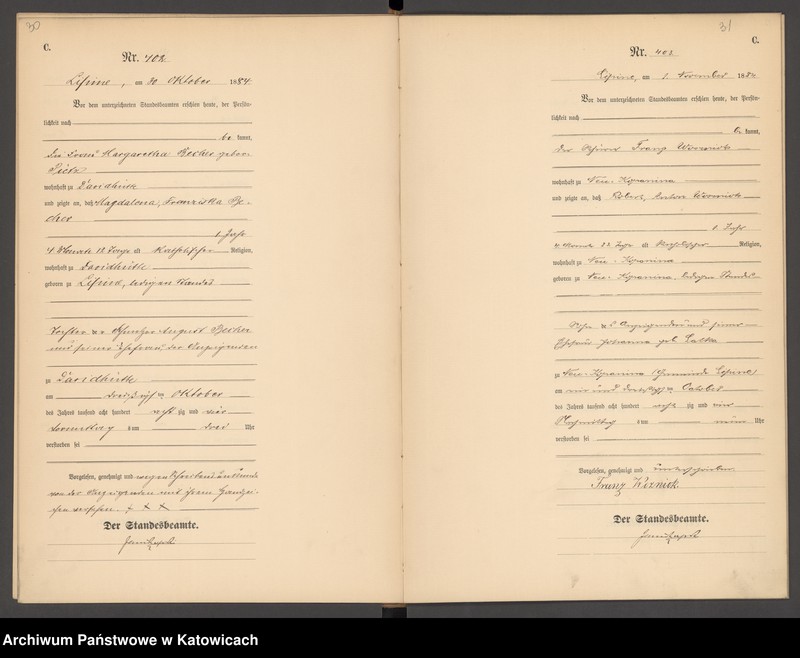 30
C.
Nr. 402
Lipine, am 30 Oktober 1884
Vor dem unterzeichneten Standesbeamten erschien heute, der Persön-
lichkeit nach
be kannt,
die Margaretha Becher geborene
wohnhaft zu Davidhütte
und zeigte an, daß Magdalena, Franziska Be-
cher
1 Jahr
4 Monate 12 Tage alt katholischer Religion,
wohnhaft zu Davidhütte
geboren zu Lipine, ledigen Standes
Tochter des August Becher
und seiner Ehefrau der Anzeigenden
zu Davidhütte
am Oktober
des Jahres tausend acht hundert achtzig und vier
Vormittag um drei Uhr
verstorben sei
Vorgelesen, genehmigt und wegen Schreibensunkunde
von der Anzeigenden mit ihrem Handzei-
chen versehen + X X
Der Standesbeamte.
31
C.
Nr. 403
Lipine, am 1. November 1884
Vor dem unterzeichneten Standesbeamten erschien heute, der Persön-
lichkeit nach
be kannt,
der Franz
wohnhaft zu Neu-
und zeigte an, daß Robert,
1 Jahr
4 Monate 22 Tage alt katholischer Religion,
wohnhaft zu Neu-
geboren zu Neu- ledigen Standes
Sohn des Anzeigenden und seiner
Ehefrau Johanna geb.
zu Neu- (Gemeinde Lipine)
am ein und dreißigsten Oktober
des Jahres tausend acht hundert achtzig und vier
Nachmittag um neun Uhr
verstorben sei
Vorgelesen, genehmigt und unterschrieben
Franz
Der Standesbeamte.
Archiwum Państwowe w Katowicach